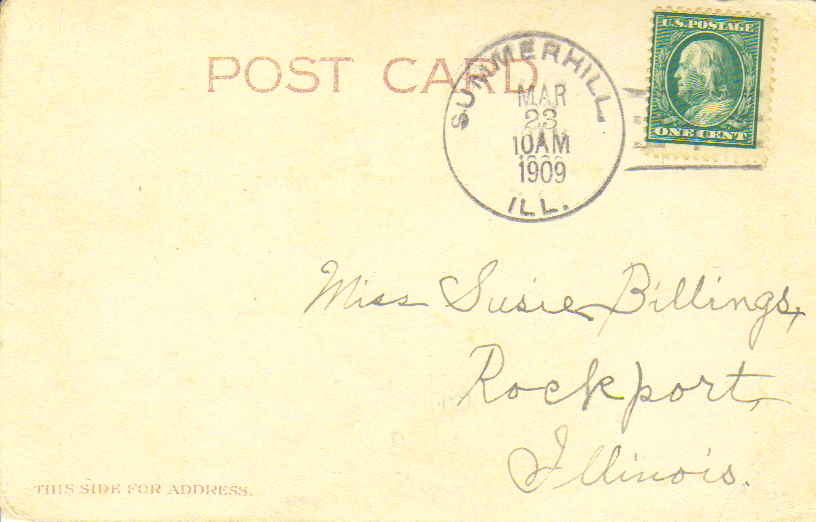 POST CARD
SUMMERHILL
MAR
23
10AM
1909
ILL.
U.S. POSTAGE
ONE CENT
Miss Susie Billings,
Rockport,
Illinois.
THIS SIDE FOR ADDRESS.